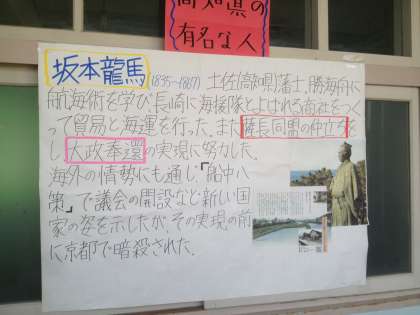 高知県の
有名な人
坂本龍馬(1835-1867) 土佐(高知県)藩士。勝海舟に
航海術を学び、長崎に海援隊とよばれる商社をつく
って貿易と海運を行った。また薩長同盟の仲立ちを
し、大政奉還の実現に努力した。
海外の情勢にも通じ、「船中八
策」で議会の開設など新しい国
家の姿を示したが、その実現の前
に京都で暗殺された。